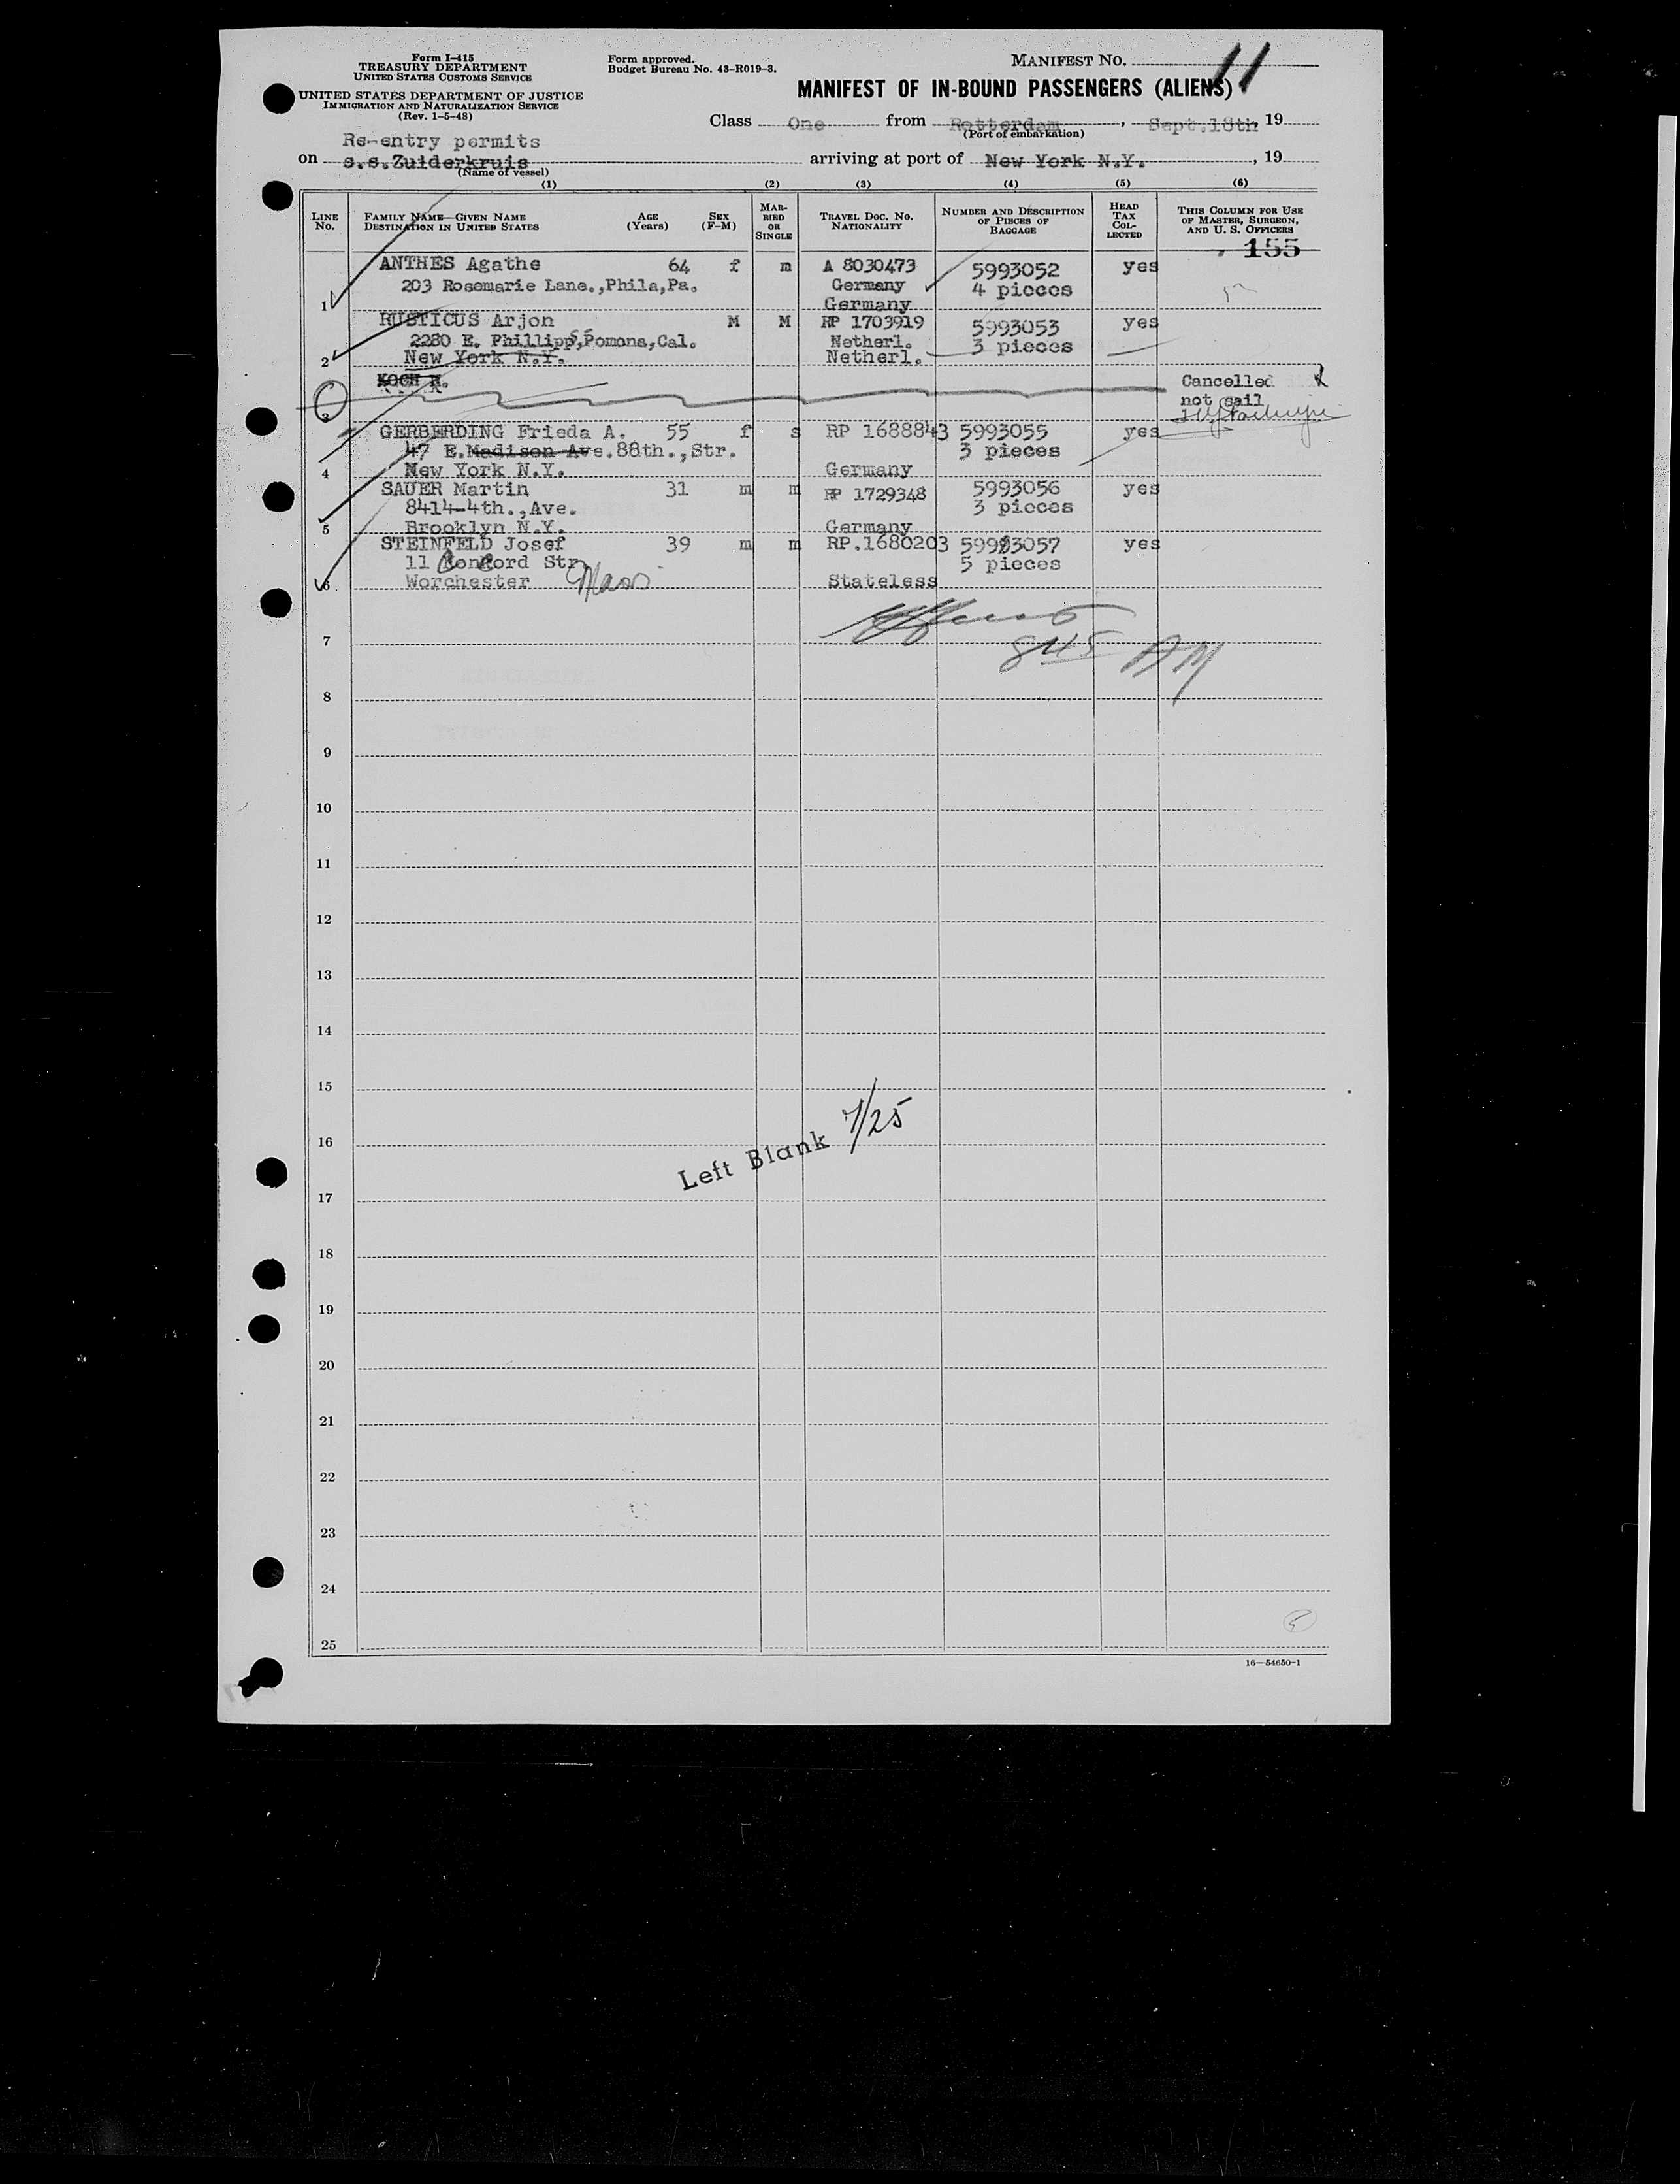 Form I-415
TREASURY DEPARTMENT
UNITED STATES CUSTOMS SERVICE
UNITED STATES DEPARTMENT OF JUSTICE
IMMIGRATION AND NATURALIZATION SERVICE
(Rev. 1-5-48)
Form approved.
Budget Bureau No. 43-R019-3.
MANIFEST NO. 11
MANIFEST OF IN-BOUND PASSENGERS (ALIENS)
Class One from Rotterdam, Sept.18th 19
(Port of embarkation)
Re-entry permits
on s.s.Zuiderkruis arriving at port of New York N.Y., 19
(Name of vessel)
(1) (2) (3) (4) (5) (6)
LINE NO. FAMILY NAME—GIVEN NAME DESTINATION IN UNITED STATES AGE (Years) SEX (F-M) MARRIED OR SINGLE TRAVEL DOC. NO. NATIONALITY NUMBER AND DESCRIPTION OF PIECES OF BAGGAGE HEAD TAX COLLECTED THIS COLUMN FOR USE OF MASTER, SURGEON, AND U. S. OFFICERS
155
ANTHES Agathe 64 f m A 8030473 5993052 yes
203 Rosemarie Lane.,Phila,Pa. Germany 4 pieces
1 Germany
RUSTICUS Arjon M M RP 1703919 5993053 yes
2280 E. Phillipps,Pomona,Cal. Netherl. 3 pieces
2 New York N.Y. Netherl.
KOCH H. Cancelled
not sail
3
GERBERDING Frieda A. 55 f s RP 1688843 5993055 yes
47 E.Madison Ave.88th.,Str. 3 pieces
4 New York N.Y. Germany
SAUER Martin 31 m m RP 1729348 5993056 yes
8414-4th.,Ave. 3 pieces
5 Brooklyn N.Y. Germany
STEINFELD Josef 39 m m RP.1680203 5993057 yes
11 Concord Str 5 pieces
6 Worchester Mass Stateless
7
845 AM
8
9
10
11
12
13
14
15
16
Left Blank 7/25
17
18
19
20
21
22
23
24
25
16—54650-1